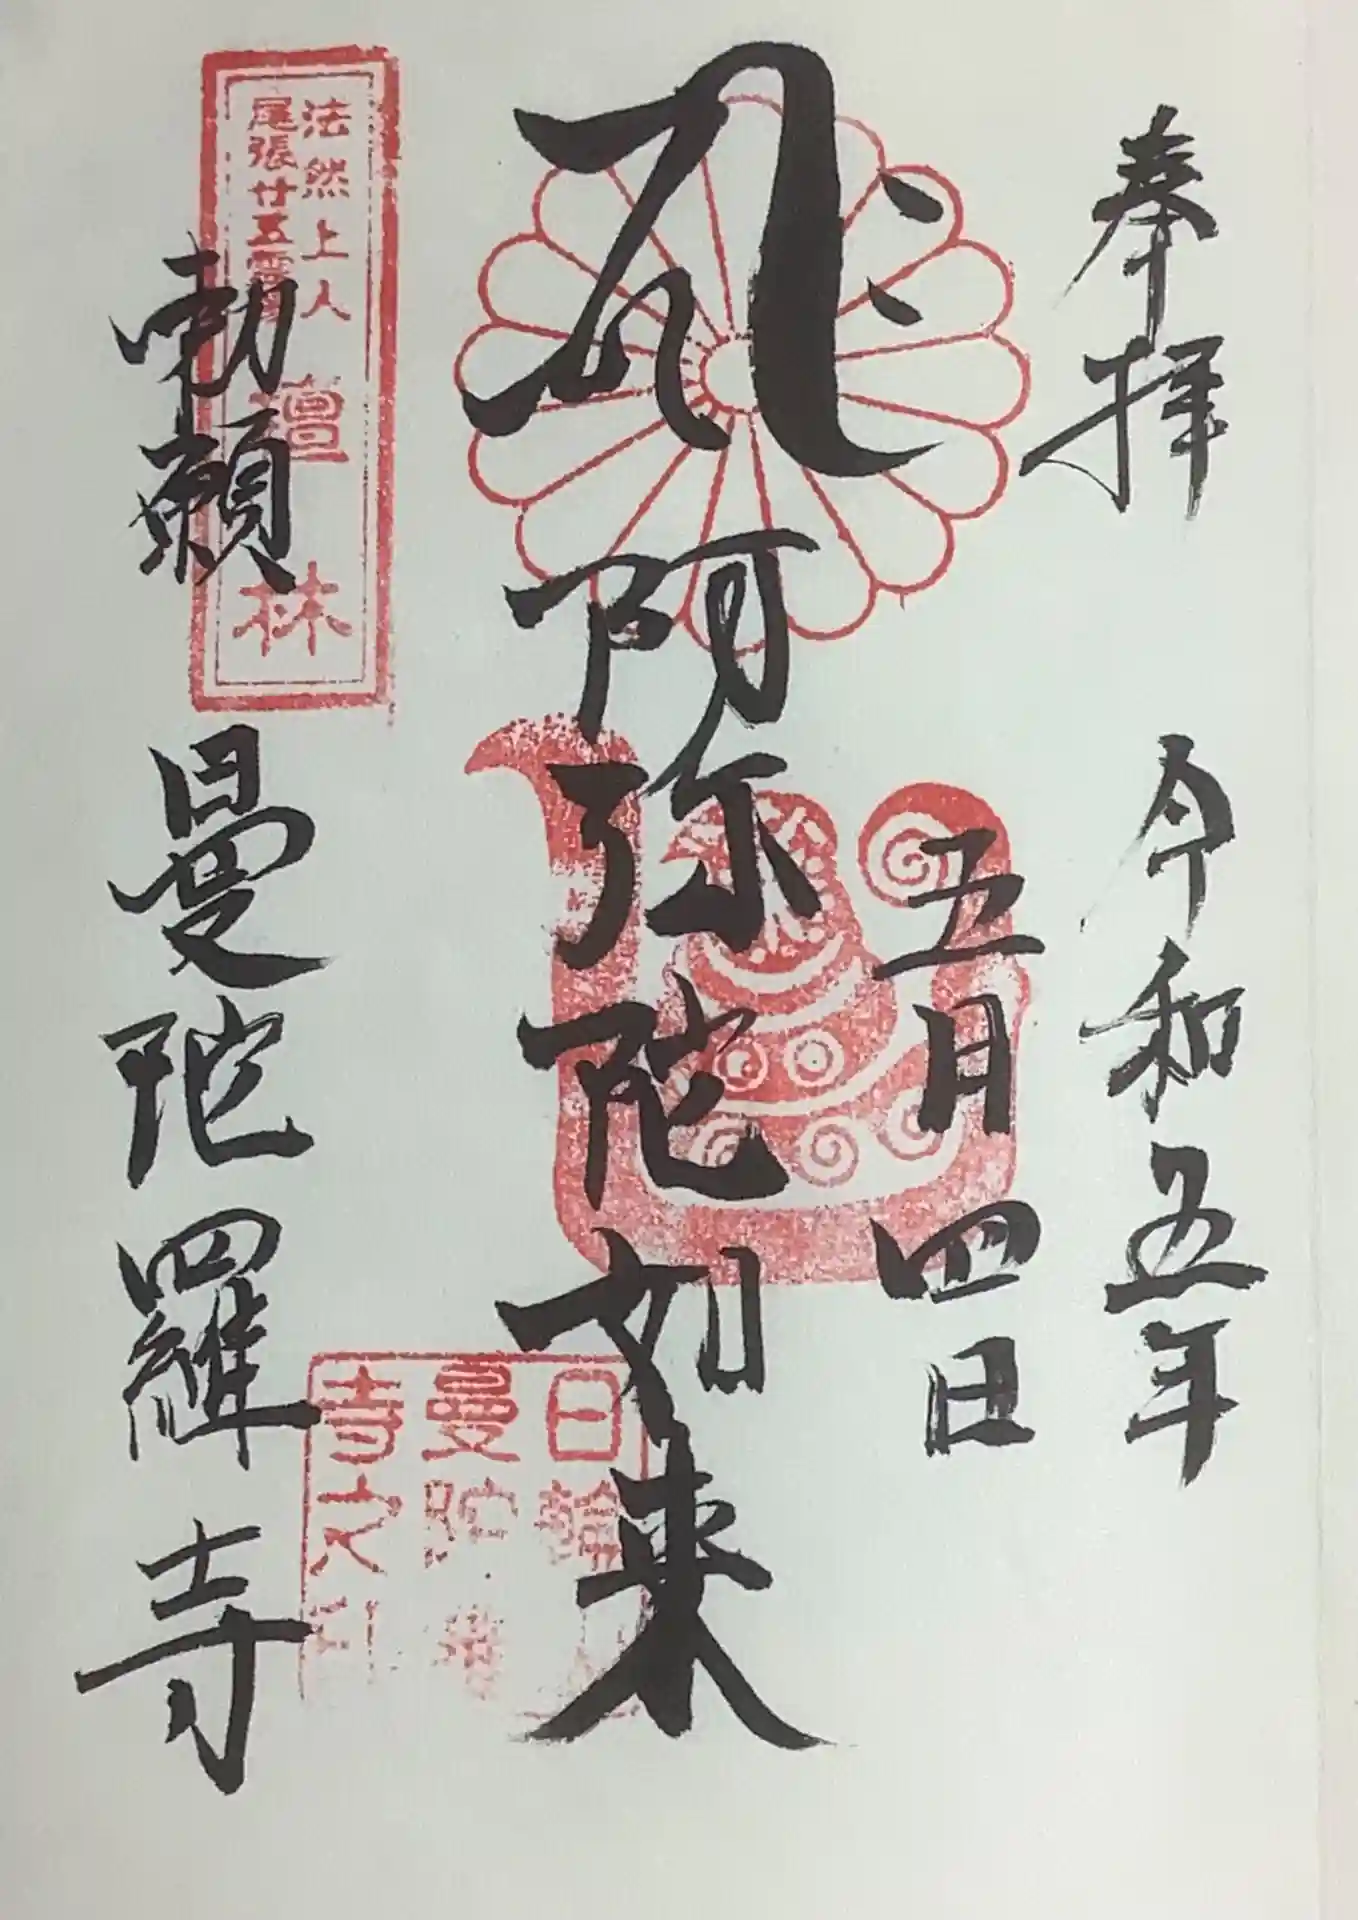 奉拝
令和五年
五月四日
𑖮𑖿𑖨𑖱𑖾
阿弥陀如来
勅願
曼陀羅寺
法然上人
尾張廿五霊場
檀林
日輪
曼陀羅
寺之印